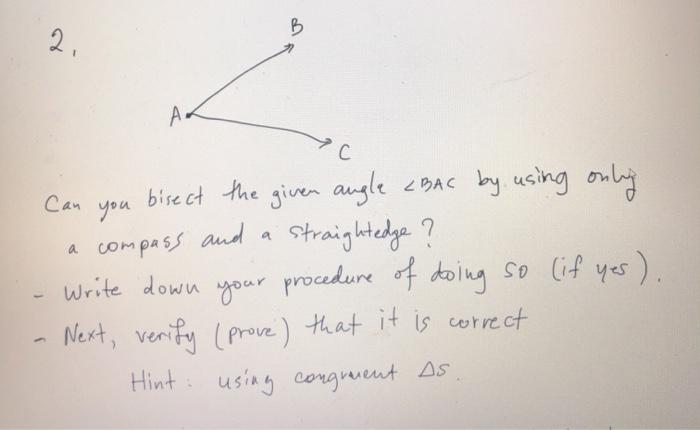 2,
B
A
C
Can you bisect the given angle ∠BAC by using only
a compass and a straightedge?
- Write down your procedure of doing so (if yes).
- Next, verify (prove) that it is correct
Hint: using congruent Δs.